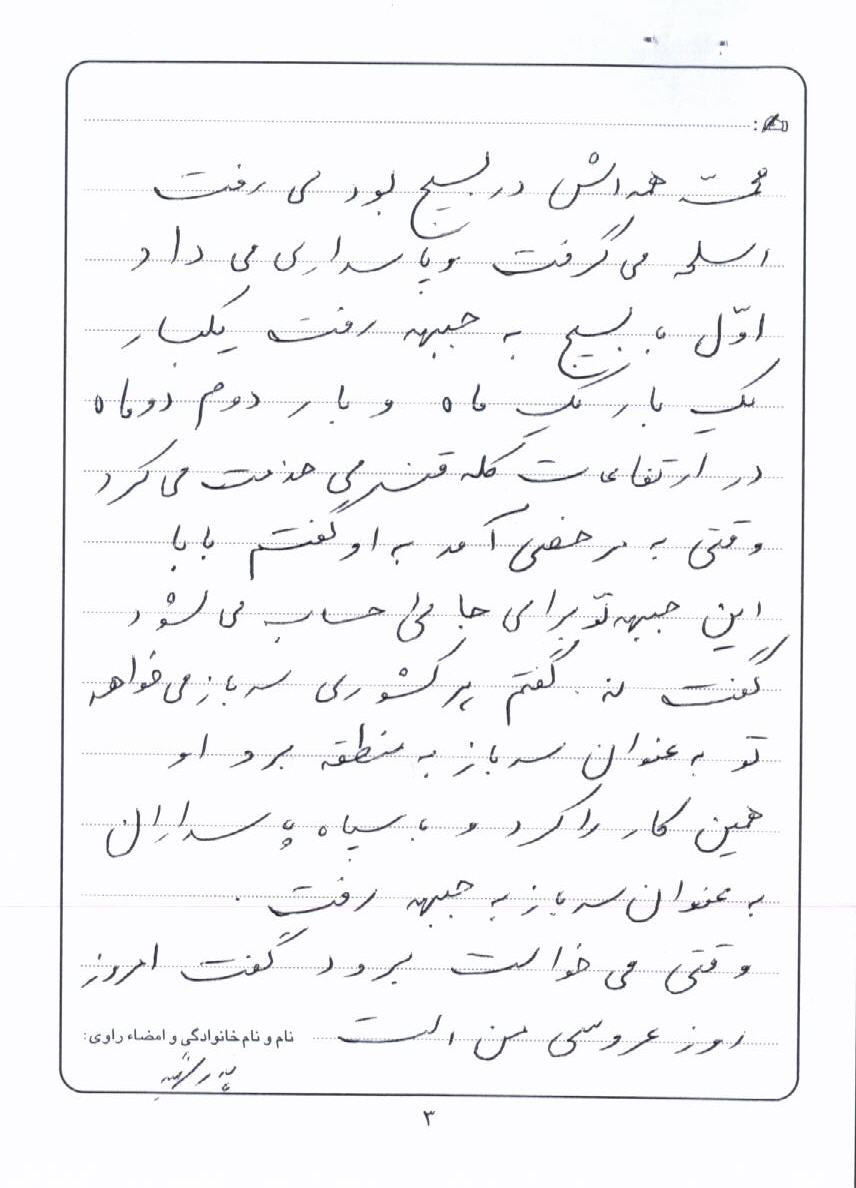 همه‌اش در بسیج بود می رفت
اسلحه می گرفت و پاسداری می داد
اوّل با بسیج به جبهه رفت یکبار
یک بار یک ماه و بار دوم دو ماه
در ارتفاعات کله قندی خدمت می کرد
وقتی به مرخصی آمد به او گفتم بابا
این جبهه تو برای جایی حساب می شود
گفت نه . گفتم هر کشوری سرباز می خواهد
تو به عنوان سرباز به منطقه برو او
همین کار را کرد و با سپاه پاسداران
به عنوان سرباز به جبهه رفت .
وقتی می خواست برود گفت امروز
روز عروسی من است
نام و نام خانوادگی و امضاء راوی:
پدر شهید
۳